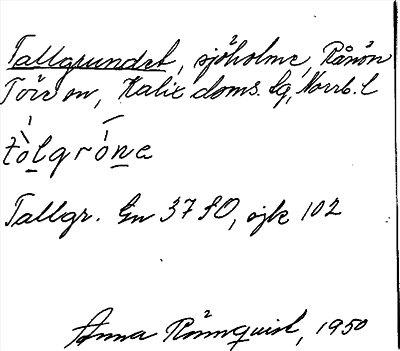 Tallgrundet, sjöholme, Rånön
Töre sn, Kalix doms. lg, Norrb. l
tòlgróne
Tallgr. Gn 3790, ojk 102
Anna Rönnquist, 1950